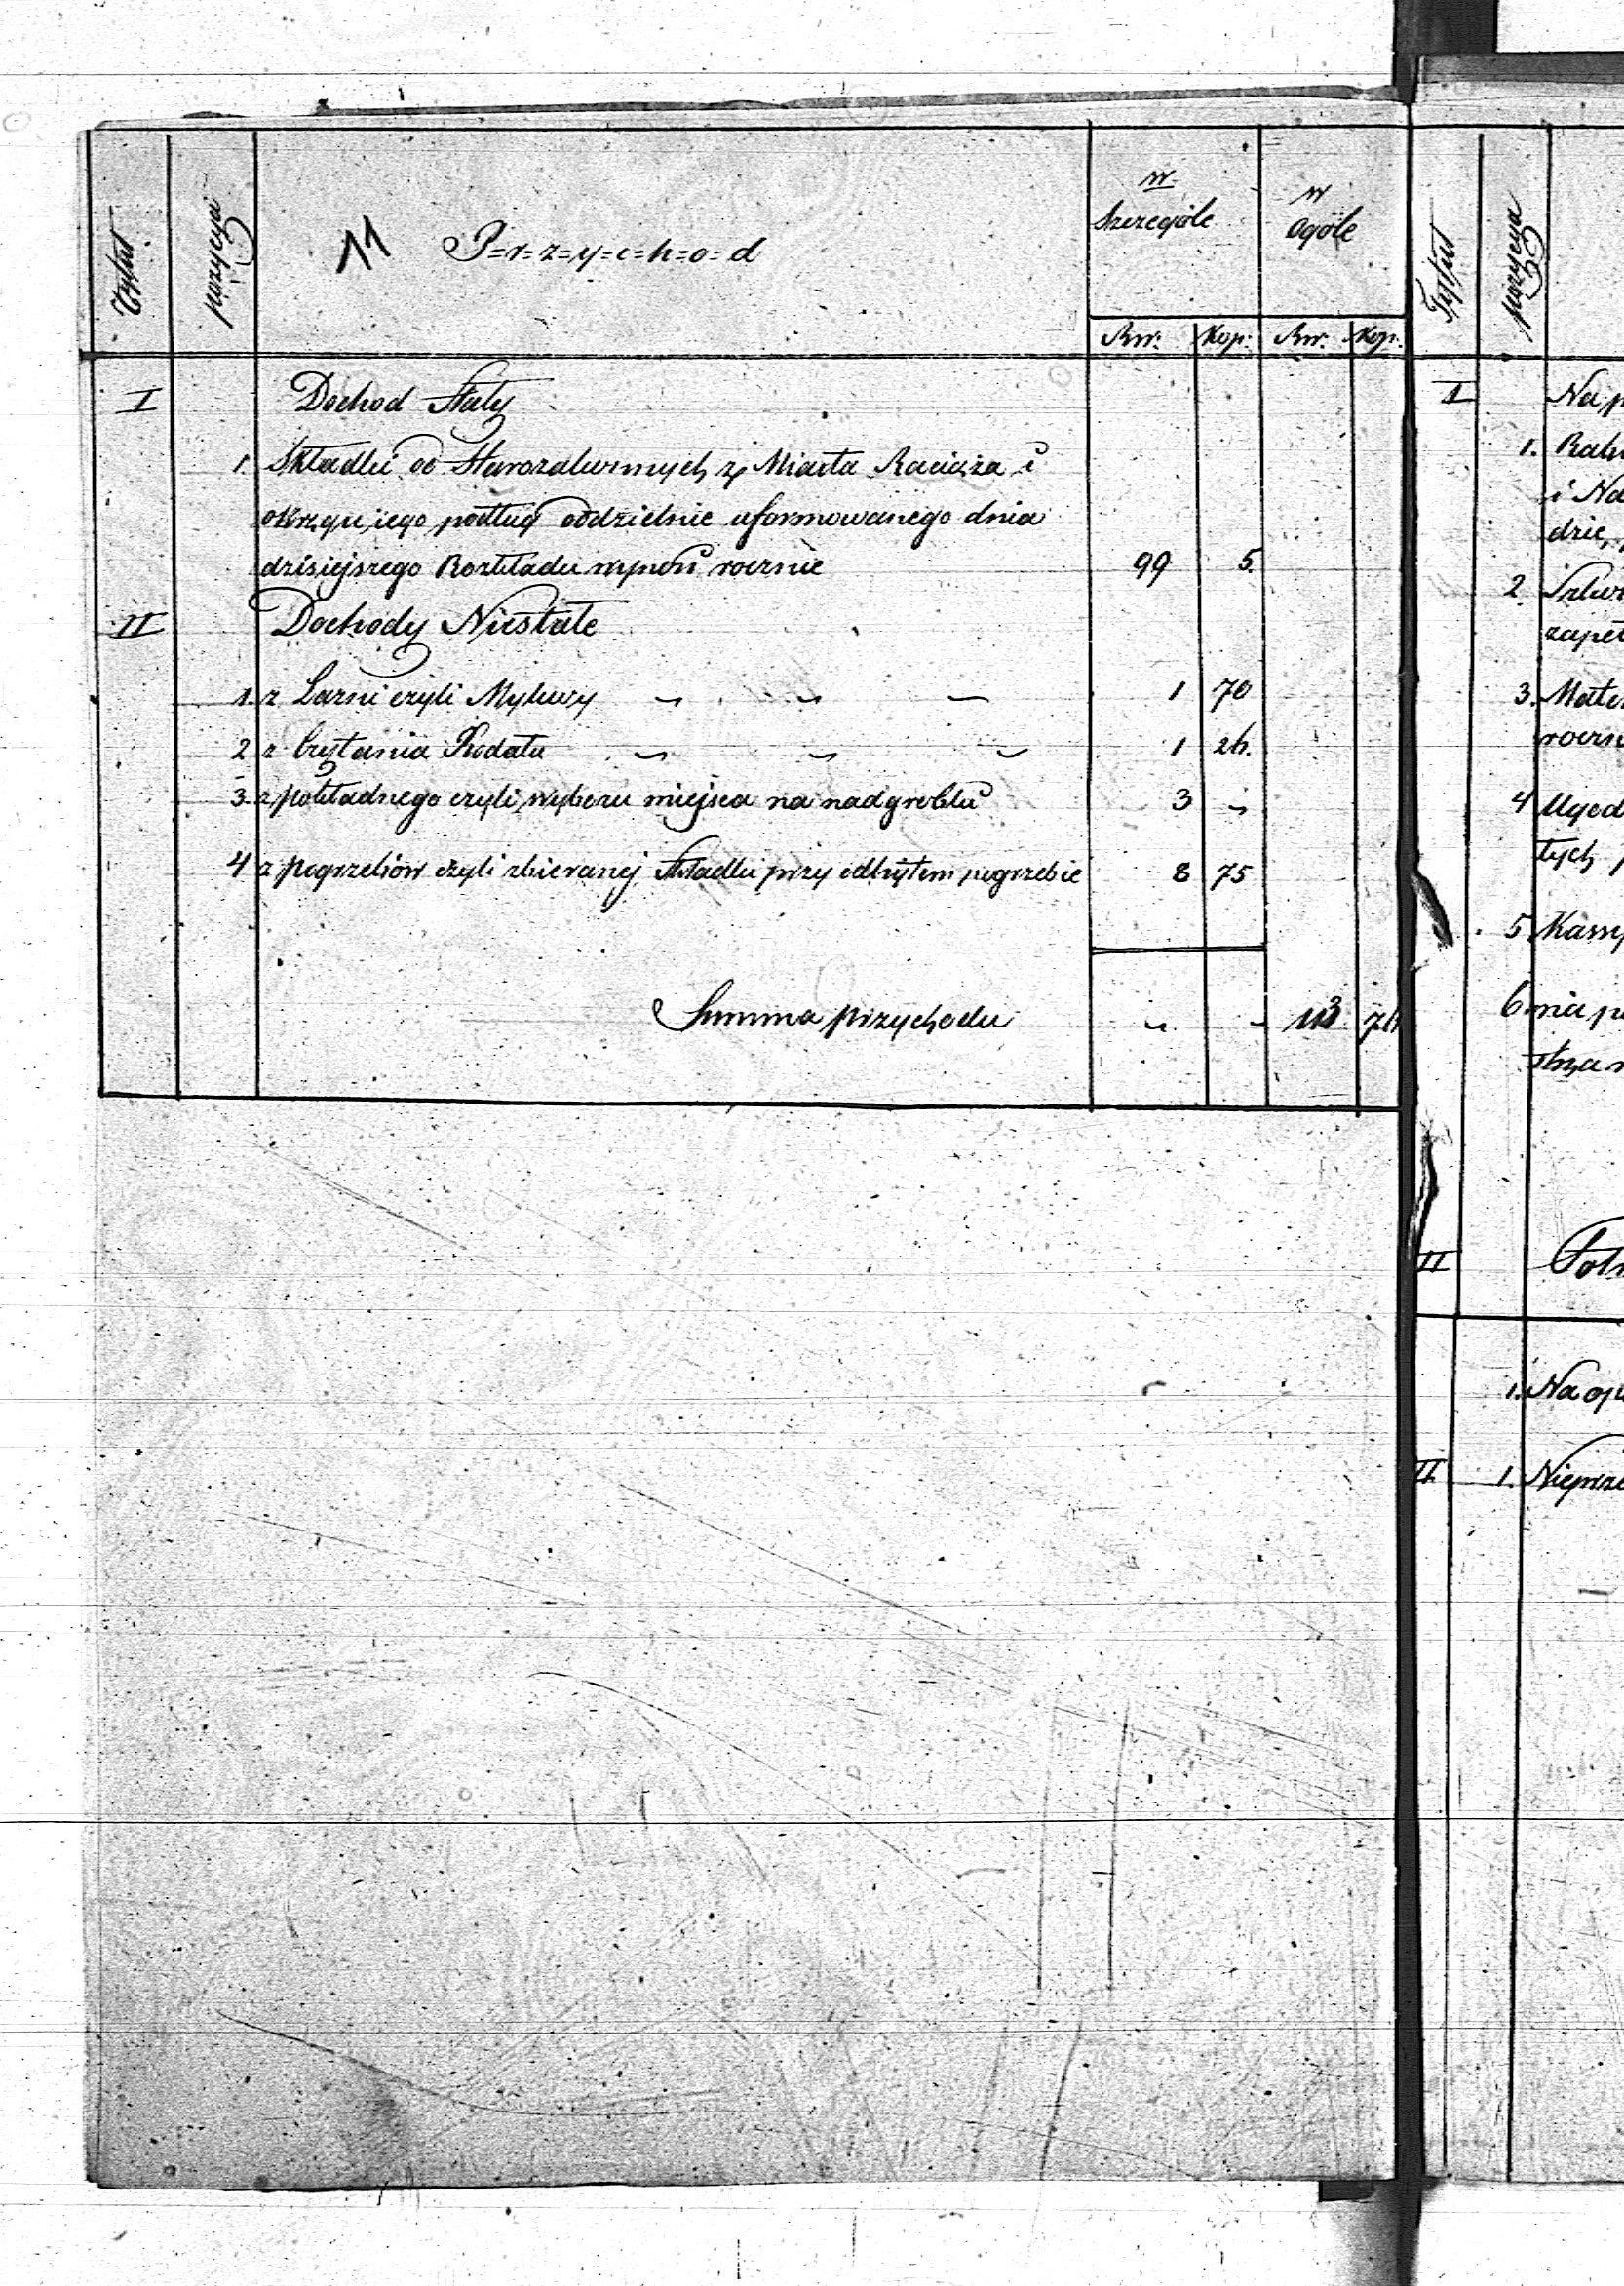 Tytuł pozycya 11 P=r=z=y=c=h=o=d w Szczególe w Ogóle
Rsr: Kop: Rsr: Kop:
I Dochod Stały
1. Składki od Starozakonnych z Miasta Raciąża i
okręgu iego podług oddzielnie uformowanego dnia
dzisiejszego Rozkładu wynosi rocznie 99 5.
II Dochody Niestałe
1. z Łazni czyli Mykwy 1 70
2 z Czytania Rodału 1 26.
3. z pokładnego czyli wyboru miejsca na nadgrobki 3 "
4 z pogrzebów czyli zbieranej Składki przy odbytem pogrzebie 8 75
Summa przychodu " " 113 76
Tytuł pozycya
I Na
1. Rab
i Na
dzie,
2
zape
3. Mate
roczn
4 Ugod
tych
5.
6. nia
II
1. Na
II 1. Nieprze